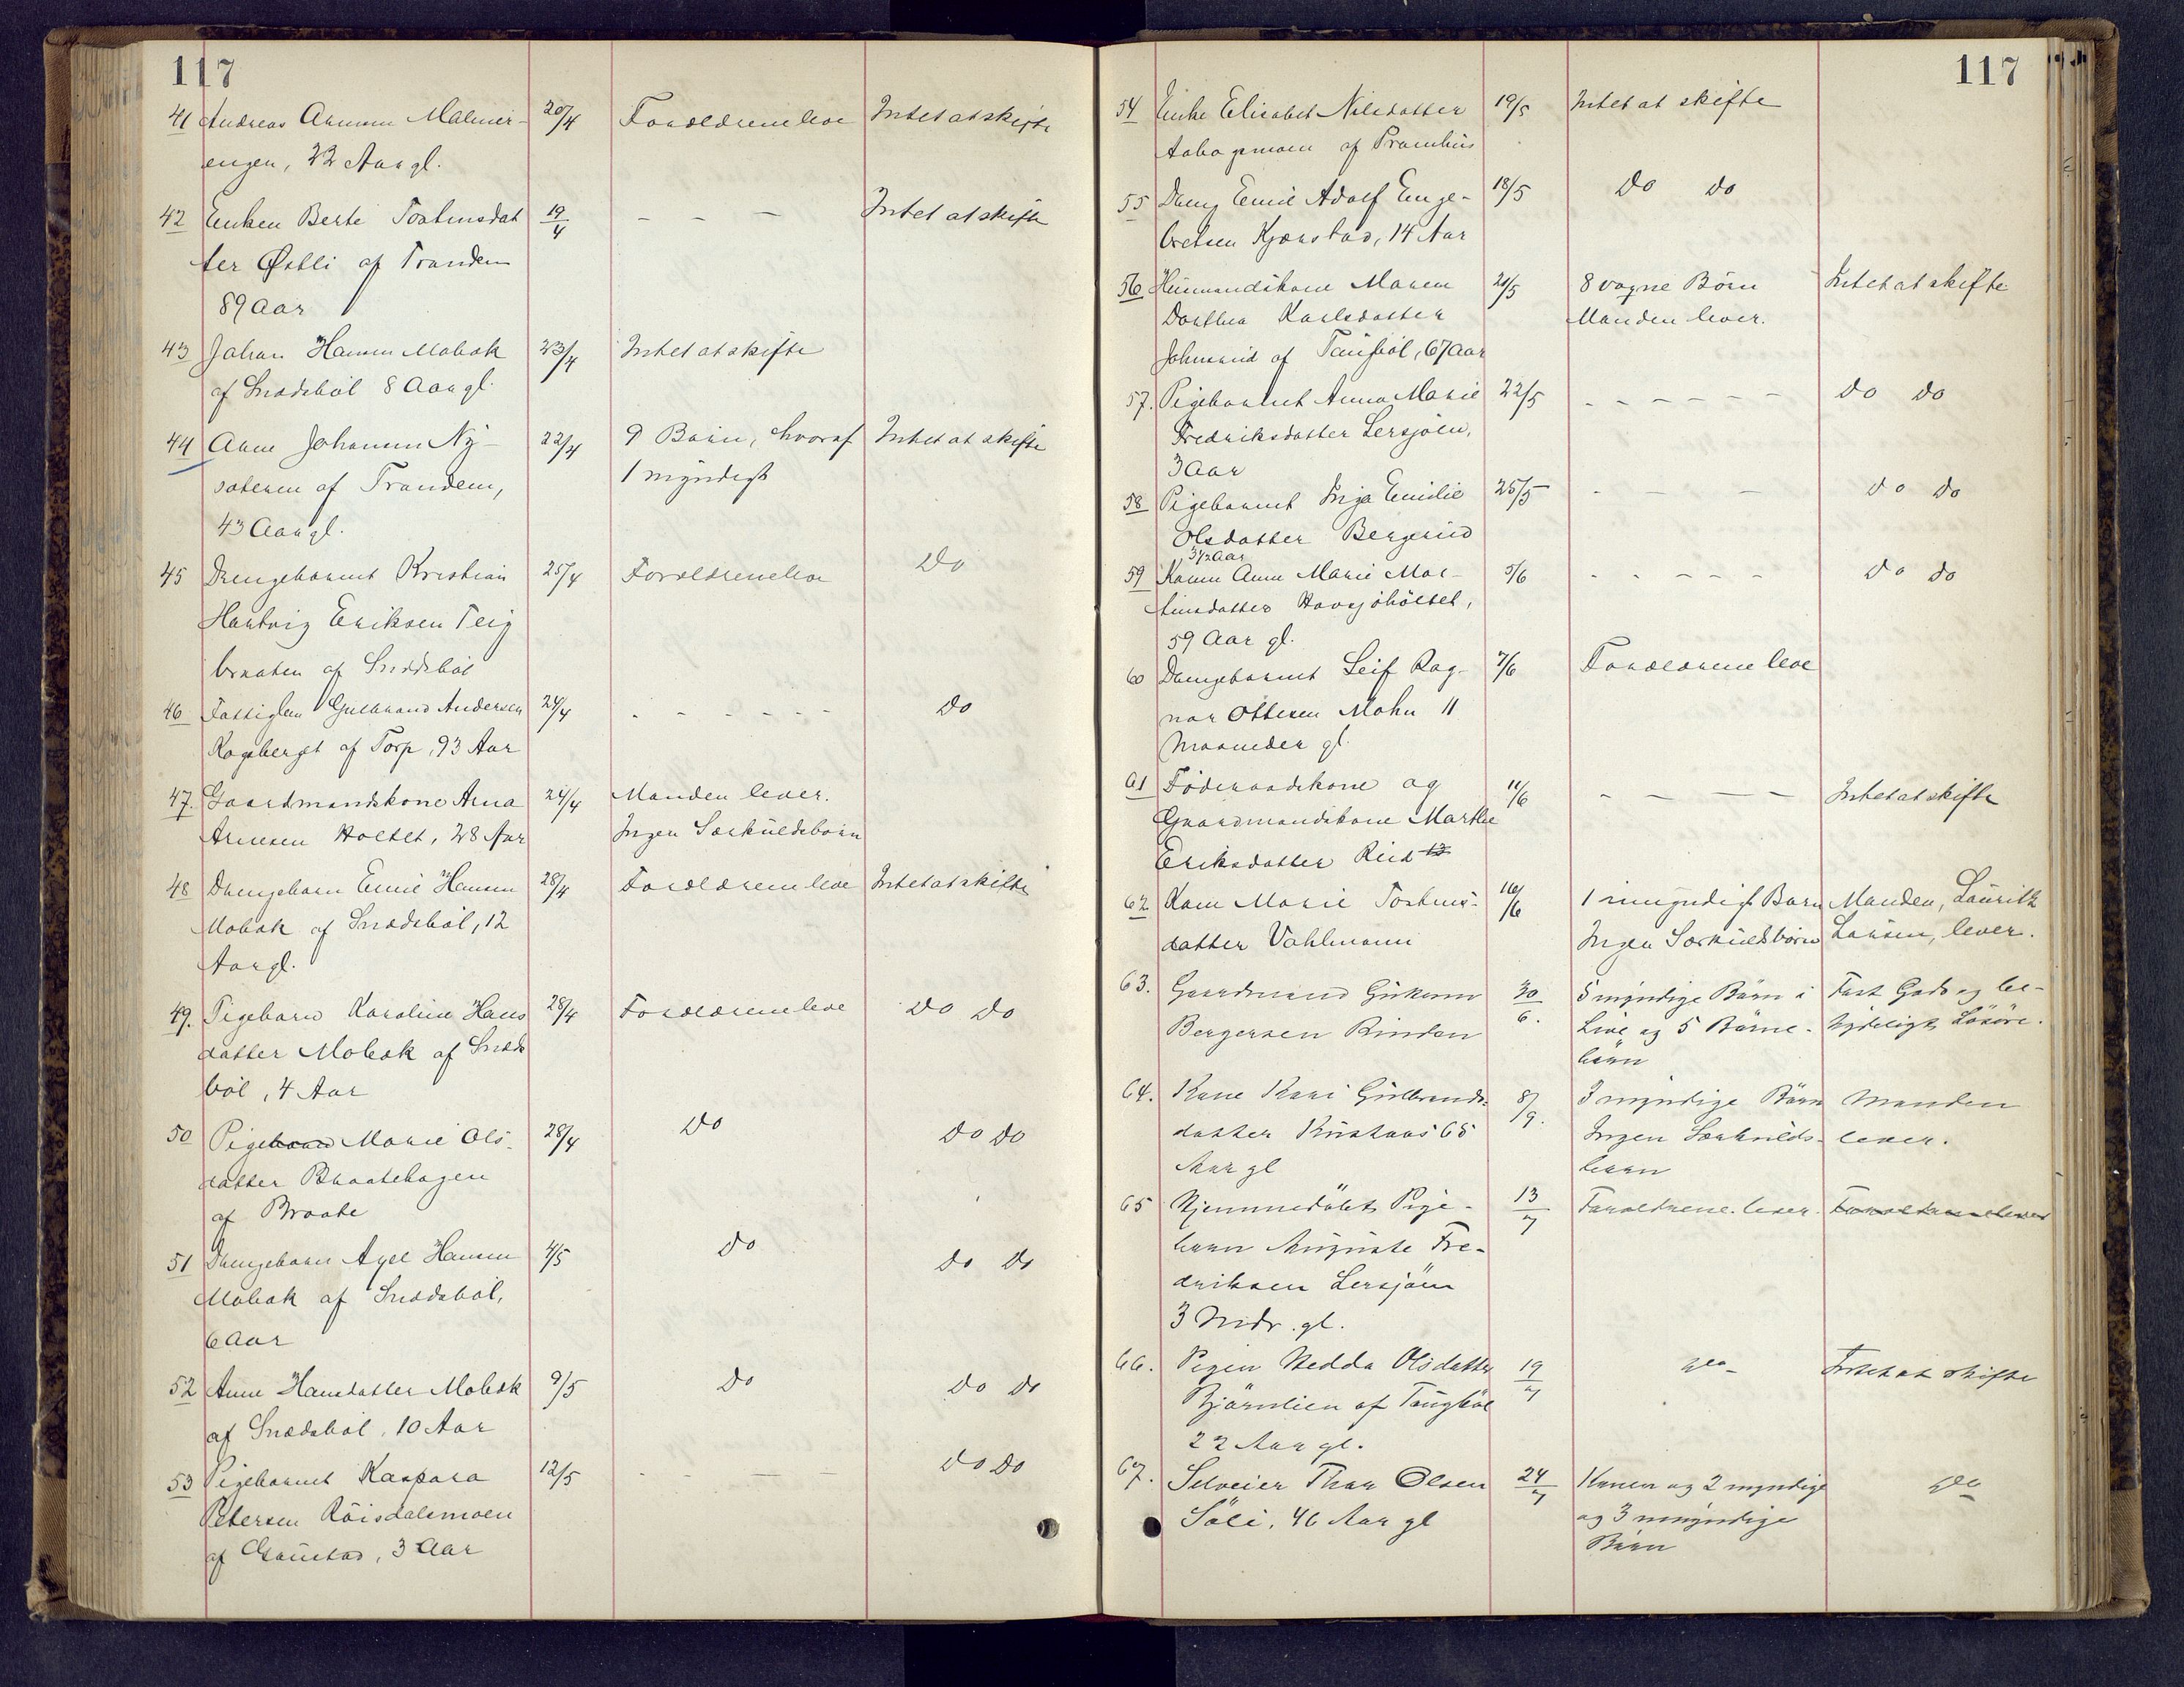 117
41 Andreas Malmer- 20/4 Forældrene leve Intet at skifte
engen, 22 Aar gl.
42 Enken Berte Tostensdat 19/4 - - - Intet at skifte
ter Østli af Tranden
89 Aar
43 Johan Hansen Mobæk 23/4 Intet at skifte
af Snedsbøl 8 Aar gl.
44 Arne Johansen Ny- 22/4 9 Børn, hvoraf Intet at skifte
sæteren af Trandem, 1 myndigt
43 Aar gl.
45 Drengebarnet Kristian 25/4 Forældrene leve Do
Hartvig Eriksen Teig
braaten af Snedsbøl
46 Fattiglem Gulbrand Andersen 24/4 - - - - - - Do
af Torp, 93 Aar
47. Gaardmandskone Anna 24/4 Manden lever.
Arnesen Holtet, 28 Aar Ingen Særkuldsbørn
48 Drengebarn Emil Hansen 28/4 Forældrene leve Intet at skifte
Mobæk af Snedsbøl, 12
Aar gl.
49. Pigebarn Karoline Hans 28/4 Forældrene leve Do Do
datter Mobæk af Sneds
bøl, 4 Aar
50 Pigebarn Marie Ols- 28/4 Do Do Do
datter Braatehagen
af Braate
51 Drengebarn Axel Hansen 4/5 Do Do Do
Mobæk af Snedsbøl,
6 Aar
52 Anne Hansdatter Mobæk 9/5 Do Do Do
af Snedsbøl, 10 Aar
53 Pigebarnet Kaspara 12/5 - - - - Do Do
Petersen Röisdalsmoen
af 3 Aar
117
54 Enke Elisabet Nilsdatter 19/5 Intet at skifte
af Pramhus
55 Dreng Emil Adolf Enge- 18/5 Do Do
bretsen Kjærstad, 14 Aar
56 Husmandskone Maren 21/5 8 voxne Börn Intet at skifte
Dorthea Karlsdatter Manden lever.
Johnsrud af 67 Aar
57. Pigebarnet Anna Marie 22/5 - - - - - - Do Do
Fredriksdatter Lersjöen,
3 Aar
58 Pigebarnet Inga Emilie 25/5 - - - Do Do
Olsdatter Bergerud
3 1/2 Aar
59 Konen Anne Marie Mar- 5/6 - - - - - Do Do
tinsdatter Havsjöholtet,
59 Aar gl.
60 Drengebarnet Leif Rag- 7/6 Forældrene leve
nar Ottesen Mohn 11
Maaneder gl.
61 Föderaadskone og 11/6 - - - - Intet at skifte
Gaardmandskone Marthe
Eriksdatter Rud
62 Kone Marie Tostens- 16/6 1 umyndigt Barn Manden, Lauritz
datter Vahlmann Ingen Særkuldsbörn Larsen, lever.
63. Gaardmand Gukum 30/6. 5 myndige Börn i Fast Gods og be-
Bergersen Rinden Live og 5 Börne- tydeligt Lösöre.
börn
64. Kone Kari Gulbrands- 8/9. 3 myndige Börn Manden
datter 65 Ingen Særkulds- lever.
Aar gl börn
65 Hjemmedöbt Pige- 13/7 Forældrene lever. Forældrene lever
barn Auguste Fre-
driksen Lersjöen
3 Mdr. gl.
66. Pigen Hedda Olsdatter 19/7 do- Intet at skifte
Björnlien af Taugböl
22 Aar gl.
67. Selveier Thor Olsen 24/7 Konen og 2 myndige do
Söli, 46 Aar gl og 3 umyndige
Börn